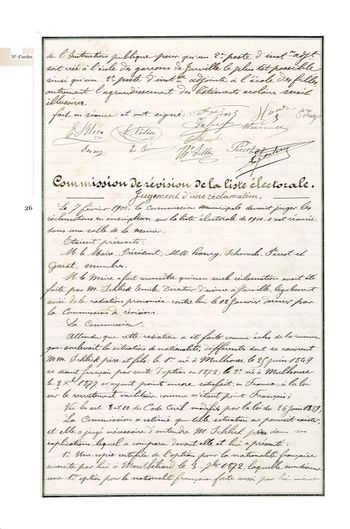 N° d'ordre.
de l'Instruction publique pour qu'un 2e poste d'inst. adjt
soit créé à l'école de garçons de Jarville le plus tôt possible
ainsi qu'un 2e poste d'instce adjointe à l'école des filles
autrement l'agrandissement des bâtiments scolaires serait
illusoire.
fait en séance et ont signé:
Commission de révision de la liste électorale.
Jugement d'une réclamation.
26
Le 7 février 1900, la Commission municipale devant juger les
réclamations en inscription sur la liste électorale de 1900 s'est réunie
dans une salle de la mairie.
Etaient présents:
M. le Maire, Président, M.M. et
membres.
M. le Maire a fait connaître qu'une seule réclamation avait été
faite par M. Schlick Emile Directeur d'usine à Jarville, légalement
avisé de la radiation prononcée contre lui le 12 Janvier dernier par
la Commission de révision.
La Commission
Attendu que cette radiation a été faite comme écho de la rumeur
que soulevait la situation de nationalité, différente dont se couvrent
M.M. Schlick père et fils, le 1er né à Mulhouse le 25 Juin 1849
se disant français par suite d'option en 1872, le 2e né à Mulhouse
le 3 1877 n'ayant point encore satisfait en France, à la loi
sur le recrutement militaire, comme n'étant point Français;
Vu les art. 8 et 12 du Code Civil modifié par la loi du 26 juin 1889.
La Commission a estimé que telle situation ne pouvait exister
et elle a jugé nécessaire d'entendre M. Schlick père dans ses
explications lequel a comparu devant elle et lui a présenté:
1° Une copie certifiée de l'option pour la nationalité française
souscrite par lui à Montbéliard le 3 7bre 1872, laquelle mentionne
une 1ère option pour la nationalité française faite aussi par lui